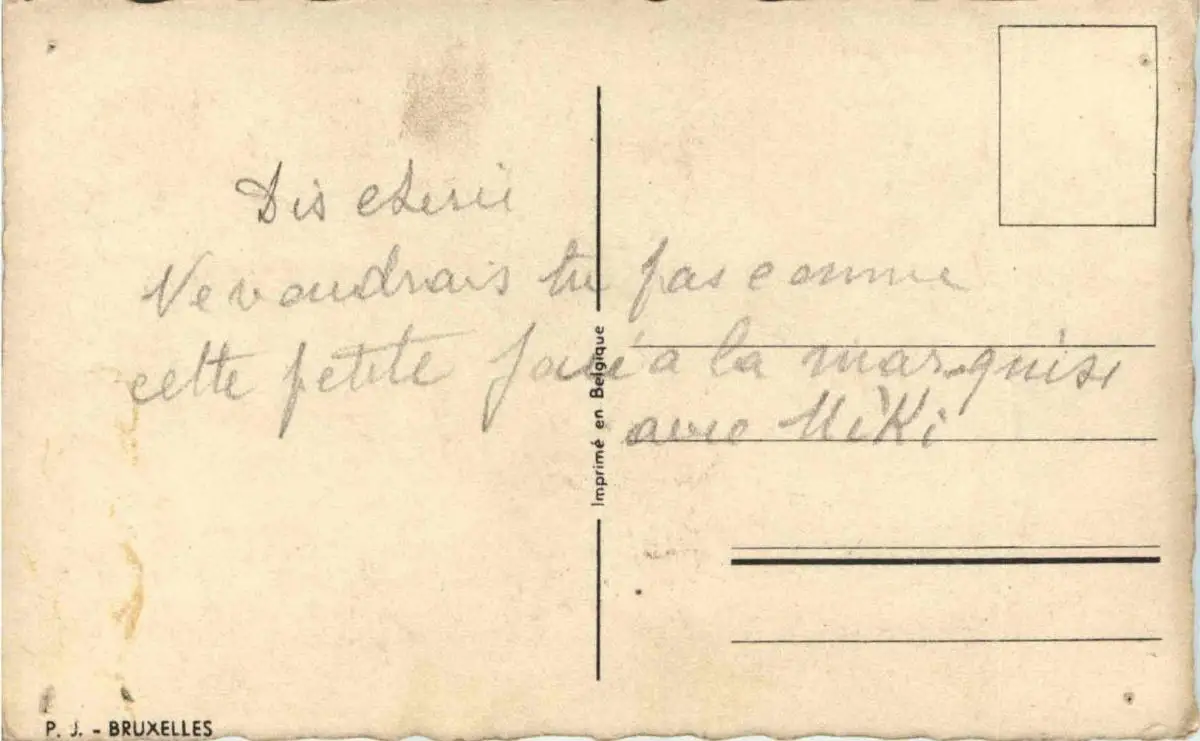 Dis cherie
Ne voudrais tu pas comme
cette petite à la marquise
avec Miki
Imprimé en Belgique
P. J. - BRUXELLES